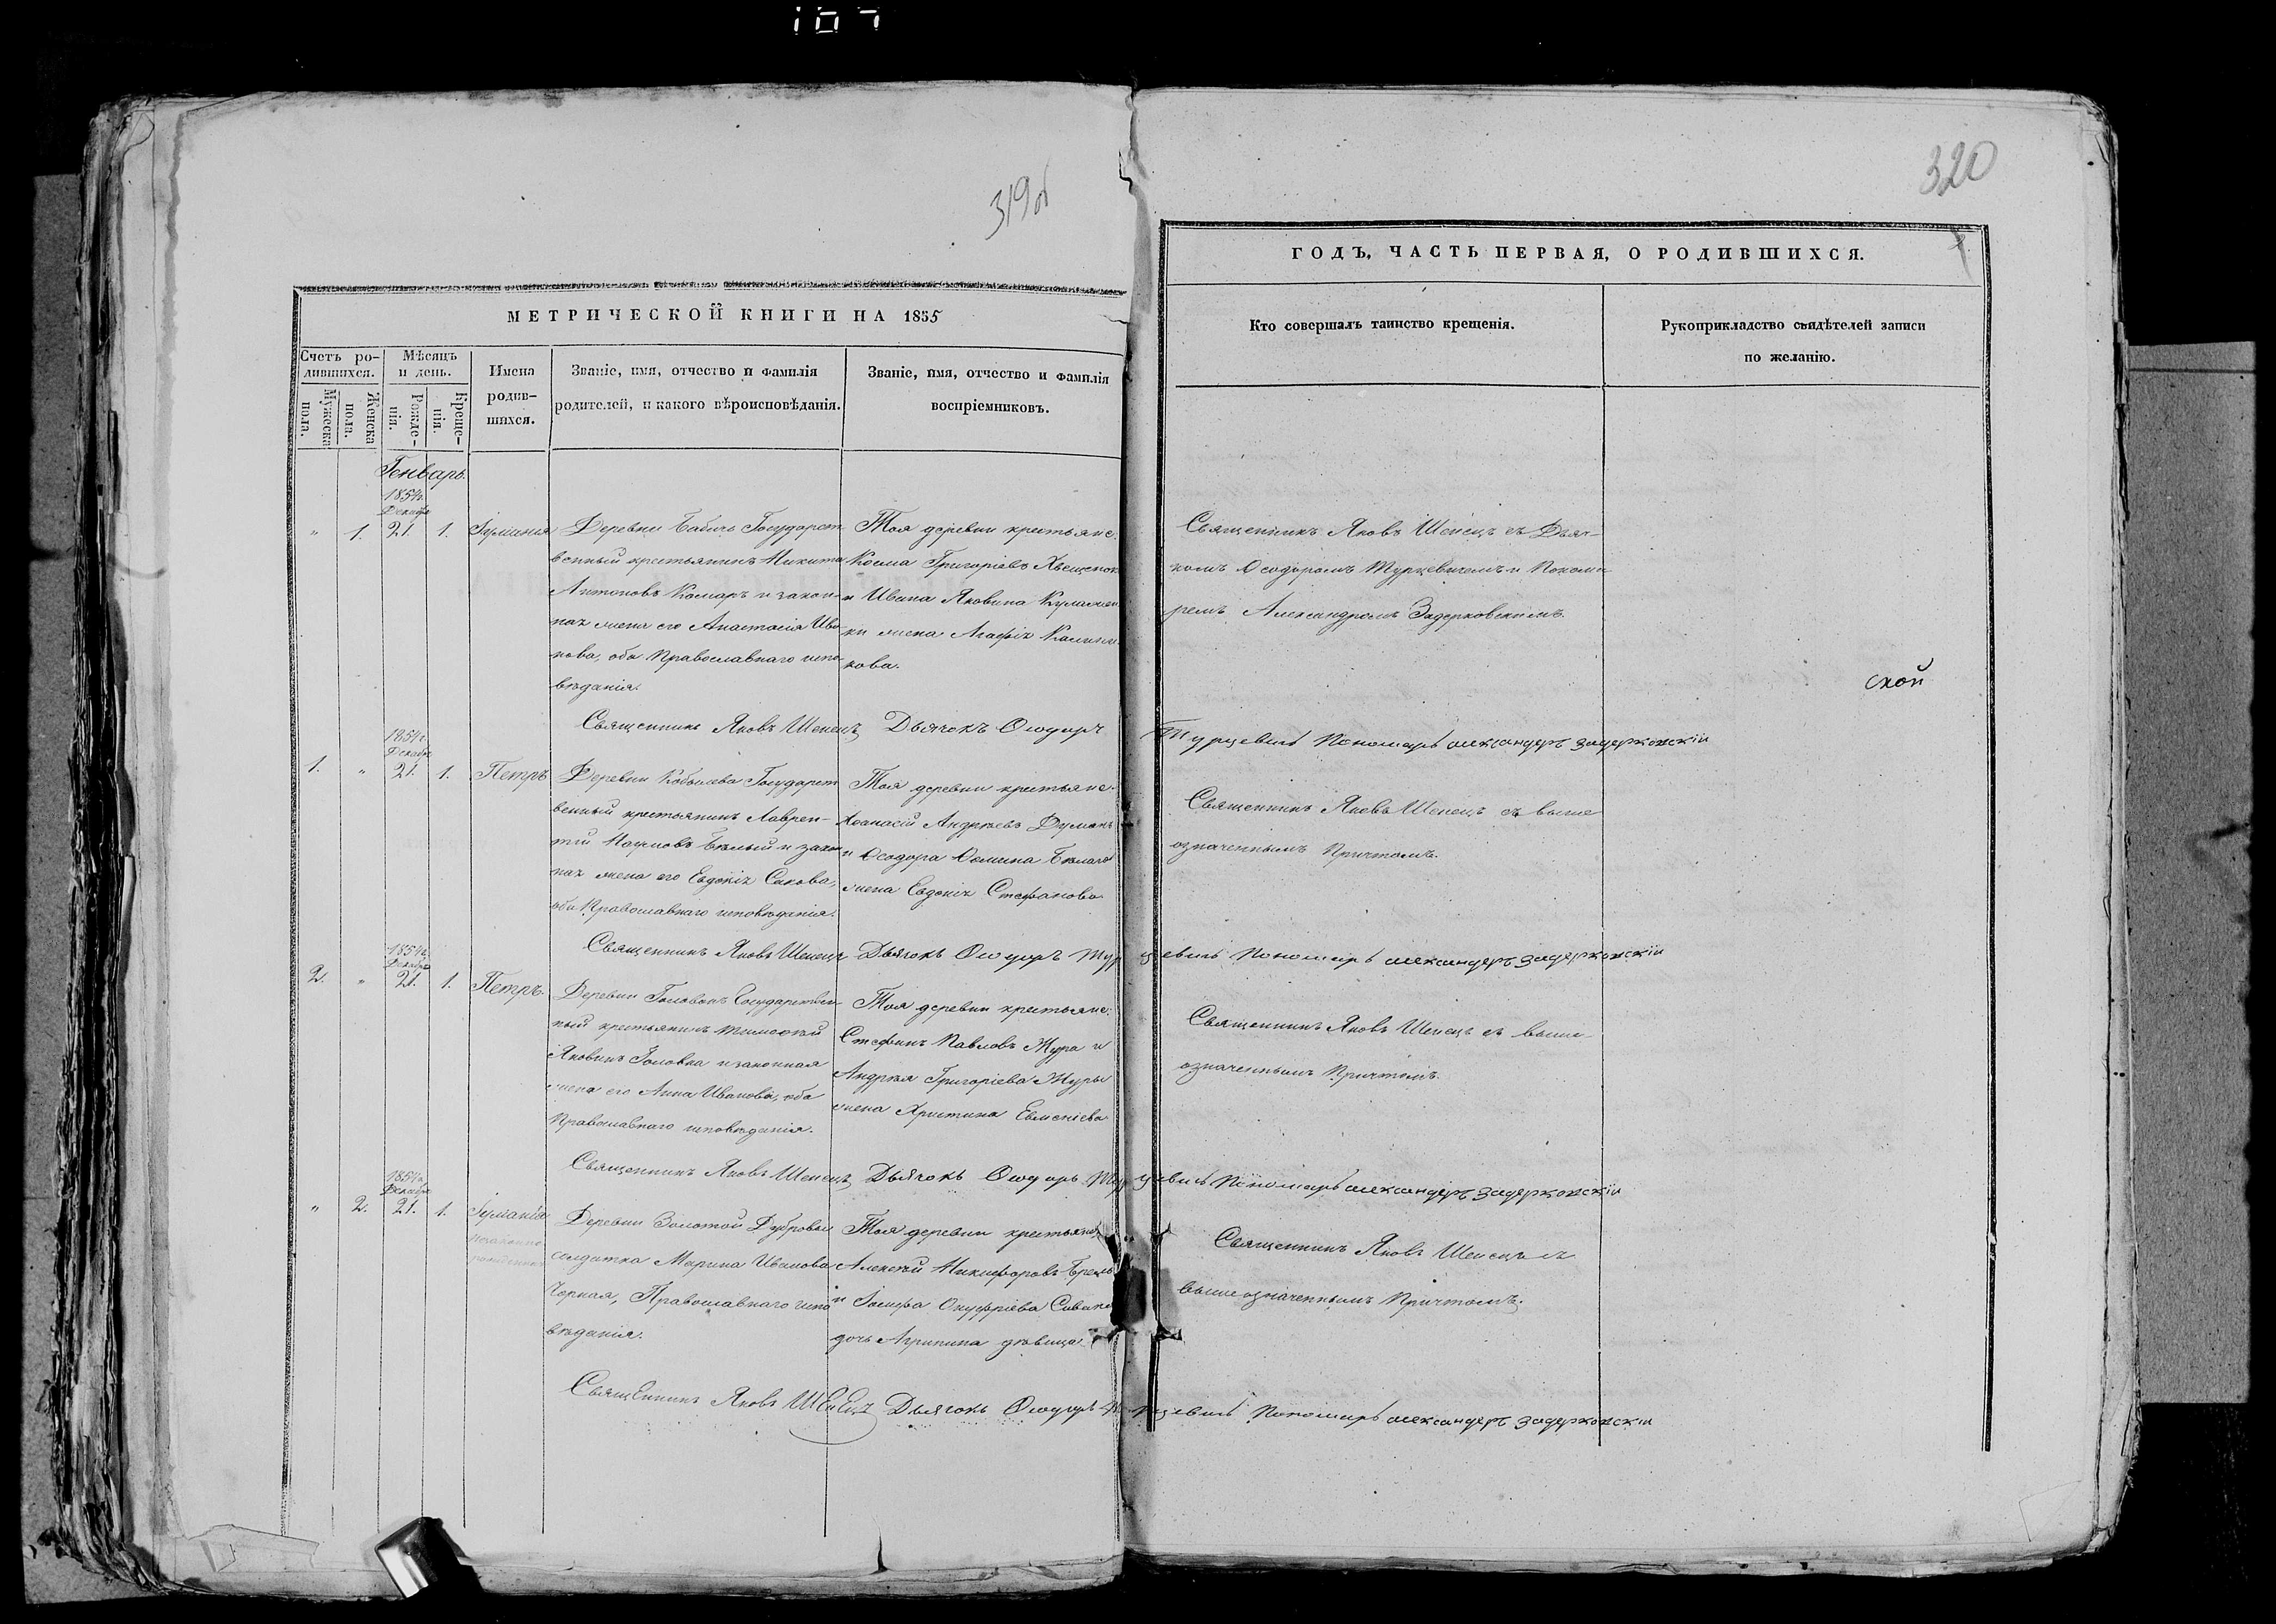 107
319об
320
МЕТРИЧЕСКОЙ КНИГИ НА 1855
ГОДЪ, ЧАСТЬ ПЕРВАЯ, О РОДИВШИХСЯ.
Счетъ ро-
дившихся.
Мужеска
пола.
Женска
пола.
Мѣсяцъ
и день.
Рожде-
нія.
Креще-
нія.
Имена
родив-
шихся.
Званіе, имя, отчество и фамилія
родителей, и какого вѣроисповѣданія.
Званіе, имя, отчество и фамилія
воспріемниковъ.
Кто совершалъ таинство крещенія.
Рукоприкладство свидѣтелей записи
по желанію.
Генварь.
1854г.
Декабр
" 1. 21. 1.
Деревни Бабичъ Государст
венный крестьянинъ Никита
Антоновъ Комаръ и закон-
ная жена его Анастасія Ива
нова, оба Православнаго испо
вѣданія.
Тоя деревни крестьяне:
Косма Григоріевъ
и Ивана Яковина
жена Агафія
Священникъ Яковъ Шепецъ съ Дьяч-
комъ Ѳеодоромъ Турцевичемъ и Поном
ремъ Александромъ Задерковскимъ.
ской
Священникъ Яковъ Шепецъ Дьячокъ Ѳеодоръ Турцевичъ Пономарь александеръ задерковскій
1854г.
Декабр
1. " 21. 1. Петръ
Деревни Кобылева Государст
венный крестьянинъ Лаврен-
тій Наумовъ Бѣлый и закон
ная жена его Евдокія Савова,
оба Православнаго исповѣданія.
Тоя деревни крестьяне:
Аѳанасій Андреевъ Думанъ
и Ѳеодора Ѳомина Бѣлаго
жена Евдокія Стефанова
Священникъ Яковъ Шепецъ съ выше
означеннымъ Причтомъ.
Священникъ Яковъ Шепецъ Дьячокъ Ѳеодоръ Турцевичъ Пономарь александеръ задерковскій
1854г.
Декабр
2. " 21. 1. Петръ.
Деревни Головокъ Государствен-
ный крестьянинъ Тимоѳей
Яковинъ Головка и законная
жена его Анна Иванова, оба
Православнаго исповѣданія.
Тоя деревни крестьяне:
Стефанъ Павловъ Жура и
Андрея Григоріева Журы
жена Христина Евменіева
Священникъ Яковъ Шепецъ съ выше
означеннымъ Причтомъ.
Священникъ Яковъ Шепецъ Дьячокъ Ѳеодоръ Турцевичъ Пономарь александеръ задерковскій
1854г.
Декабр
" 2. 21. 1.
незаконно
рожденная
Деревни Золотой Дубровы
солдатка Марина Иванова
Чорная, Православнаго испо
вѣданія.
Тоя деревни крестьяне
Алексѣй Никифоровъ
и Іосифа Онуфріева
дочь Агрипина дѣвица
Священникъ Яковъ Шепецъ съ
вышеозначеннымъ Причтомъ.
Священникъ Яковъ Шепецъ Дьячокъ Ѳеодоръ Турцевичъ Пономарь александеръ задерковскій